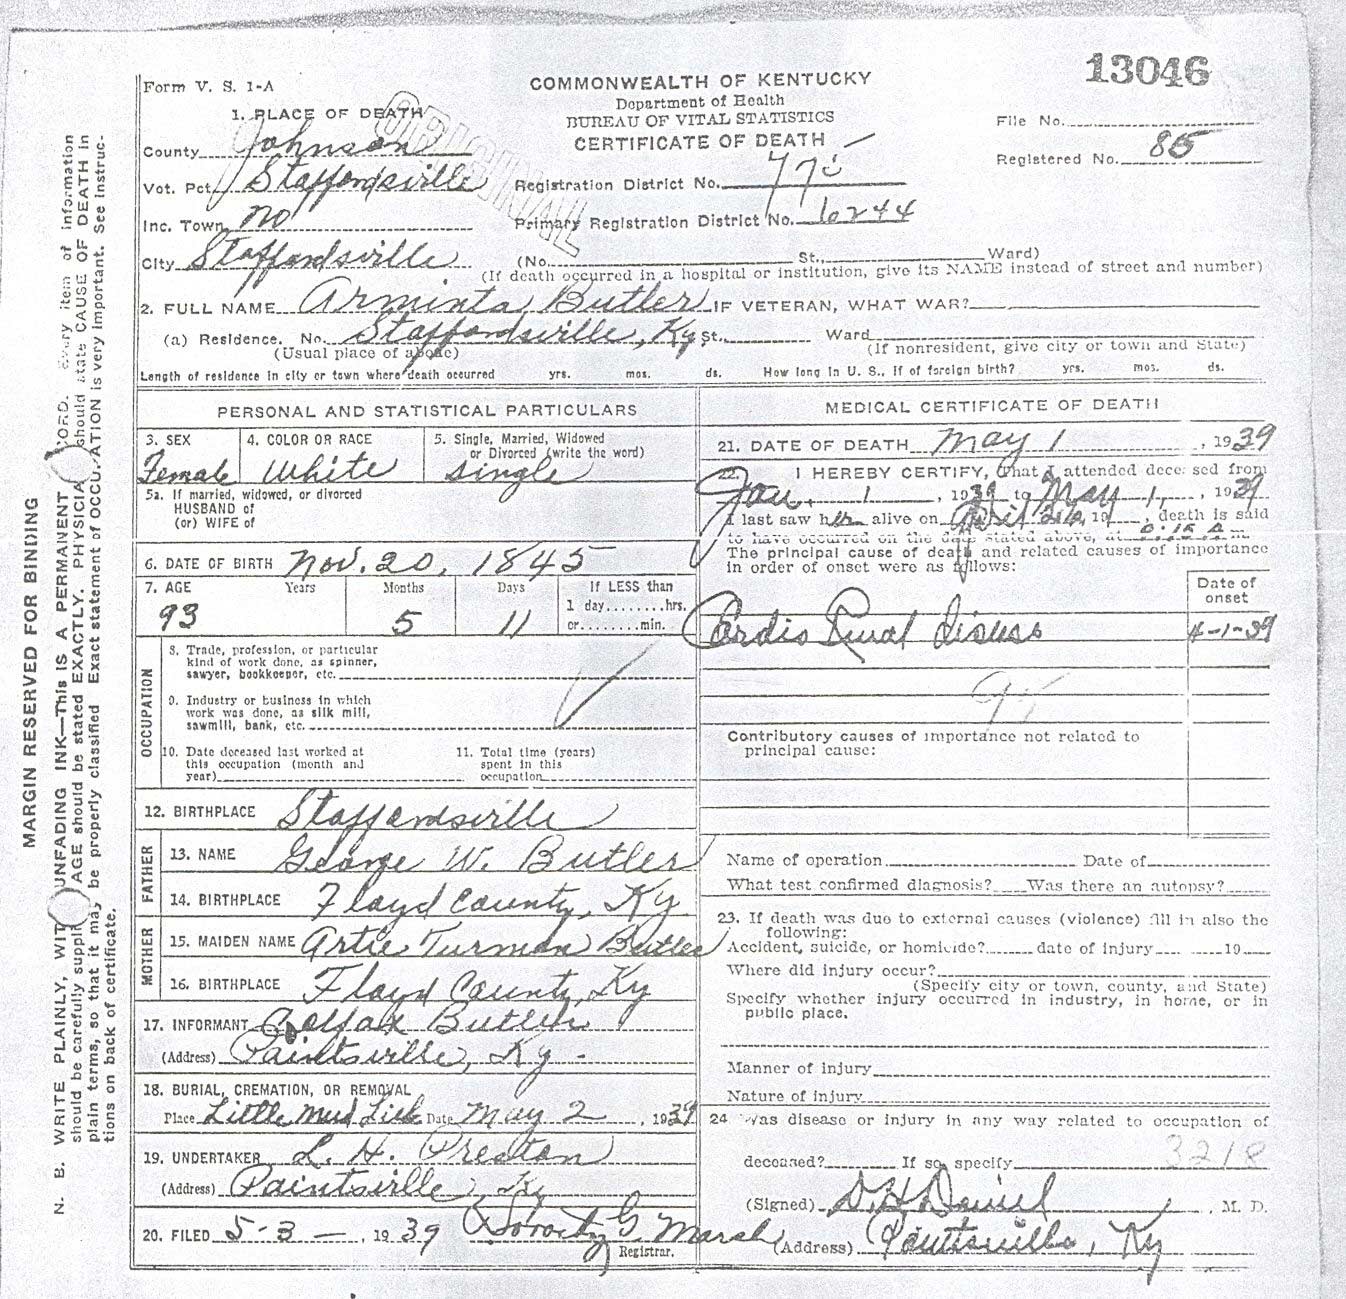 13046
Form V. S. 1-A
COMMONWEALTH OF KENTUCKY
Department of Health
BUREAU OF VITAL STATISTICS
CERTIFICATE OF DEATH
ORIGINAL
File No.
Registered No. 85
1. PLACE OF DEATH
County Johnson
Vot. Pct. Staffordsville
Registration District No.
Inc. Town no
Primary Registration District No. 6244
City Staffordsville
(No. St., Ward)
(If death occurred in a hospital or institution, give its NAME instead of street and number)
2. FULL NAME Arminta Butler IF VETERAN, WHAT WAR?
(a) Residence. No. Staffordsville, Ky St., Ward
(Usual place of abode) (If nonresident, give city or town and State)
Length of residence in city or town where death occurred yrs. mos. ds. How long in U. S., if of foreign birth? yrs. mos. ds.
PERSONAL AND STATISTICAL PARTICULARS
3. SEX Female
4. COLOR OR RACE White
5. Single, Married, Widowed
or Divorced (write the word)
single
5a. If married, widowed, or divorced
HUSBAND of
(or) WIFE of
6. DATE OF BIRTH Nov. 20, 1845
7. AGE Years Months Days If LESS than
1 day........hrs.
93 5 11 or........min.
OCCUPATION
8. Trade, profession, or particular
kind of work done, as spinner,
sawyer, bookkeeper, etc.
9. Industry or business in which
work was done, as silk mill,
sawmill, bank, etc.
10. Date deceased last worked at
this occupation (month and
year)
11. Total time (years)
spent in this
occupation
12. BIRTHPLACE Staffordsville
FATHER
13. NAME George W. Butler
14. BIRTHPLACE Floyd County, Ky
MOTHER
15. MAIDEN NAME Artie Turman Butler
16. BIRTHPLACE Floyd County, Ky
17. INFORMANT Colfax Butler
(Address) Paintsville, Ky.
18. BURIAL, CREMATION, OR REMOVAL
Place Little Mud Lick Date May 2, 1939
19. UNDERTAKER L. H. Preston
(Address) Paintsville, Ky
20. FILED 5-3-, 1939 Dorothy G. Marsh
Registrar.
MEDICAL CERTIFICATE OF DEATH
21. DATE OF DEATH May 1, 1939
22. I HEREBY CERTIFY, that I attended deceased from
Jan. 1, 1939 to May 1, 1939
I last saw her alive on April 19, death is said
to have occurred on the date stated above, at m.
The principal cause of death and related causes of importance
in order of onset were as follows:
Date of
onset
Cardio Renal disease 4-1-39
Contributory causes of importance not related to
principal cause:
Name of operation Date of
What test confirmed diagnosis? Was there an autopsy?
23. If death was due to external causes (violence) fill in also the
following:
Accident, suicide, or homicide? date of injury 19
Where did injury occur?
(Specify city or town, county, and State)
Specify whether injury occurred in industry, in home, or in
public place.
Manner of injury
Nature of injury
24. Was disease or injury in any way related to occupation of
3218
deceased? If so, specify
(Signed) D. H. Daniel, M. D.
(Address) Paintsville, Ky
MARGIN RESERVED FOR BINDING
N. B. WRITE PLAINLY, WITH UNFADING INK—THIS IS A PERMANENT RECORD. Every item of information
should be carefully supplied. AGE should be stated EXACTLY. PHYSICIANS should state CAUSE OF DEATH in
plain terms, so that it may be properly classified. Exact statement of OCCUPATION is very important. See instruc-
tions on back of certificate.